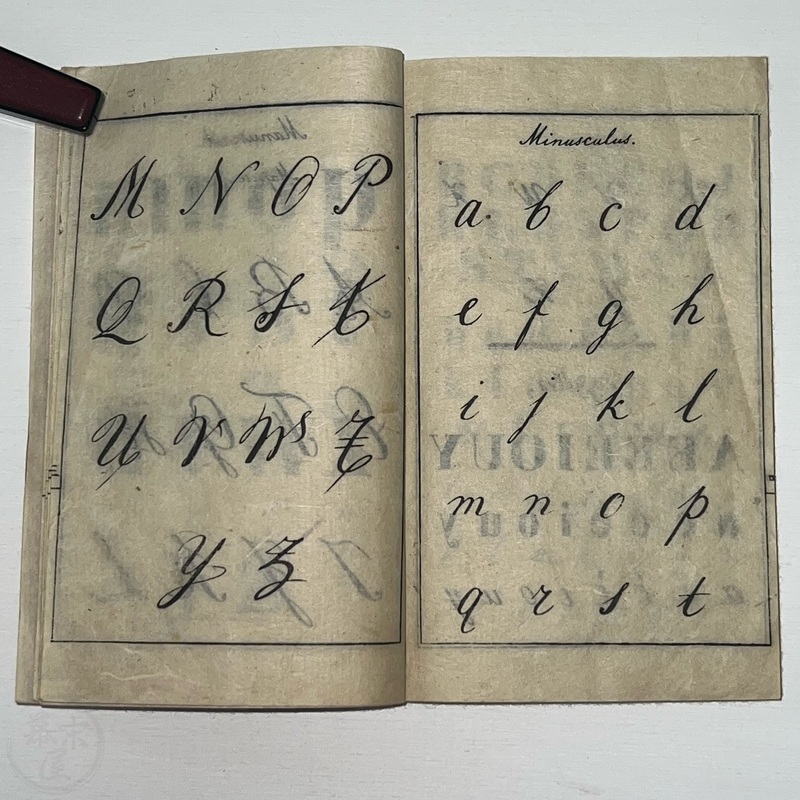 M N O P
Q R S T
U V W X
Y Z
Minusculus.
a. b c d
e f g h
i j k l
m n o p
q r s t